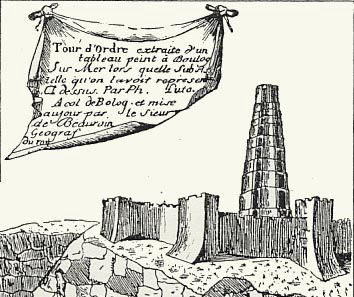 Tour d'Ordre extraite d'un
tableau peint à Boulog
Sur Mer lors quelle Sub
telle qu'on l'avoit represen
Dessus. Par Ph. Luto.
A col de Bolog. et mise
aujour par le Sieur
de Beaurain
Geograf
du roy